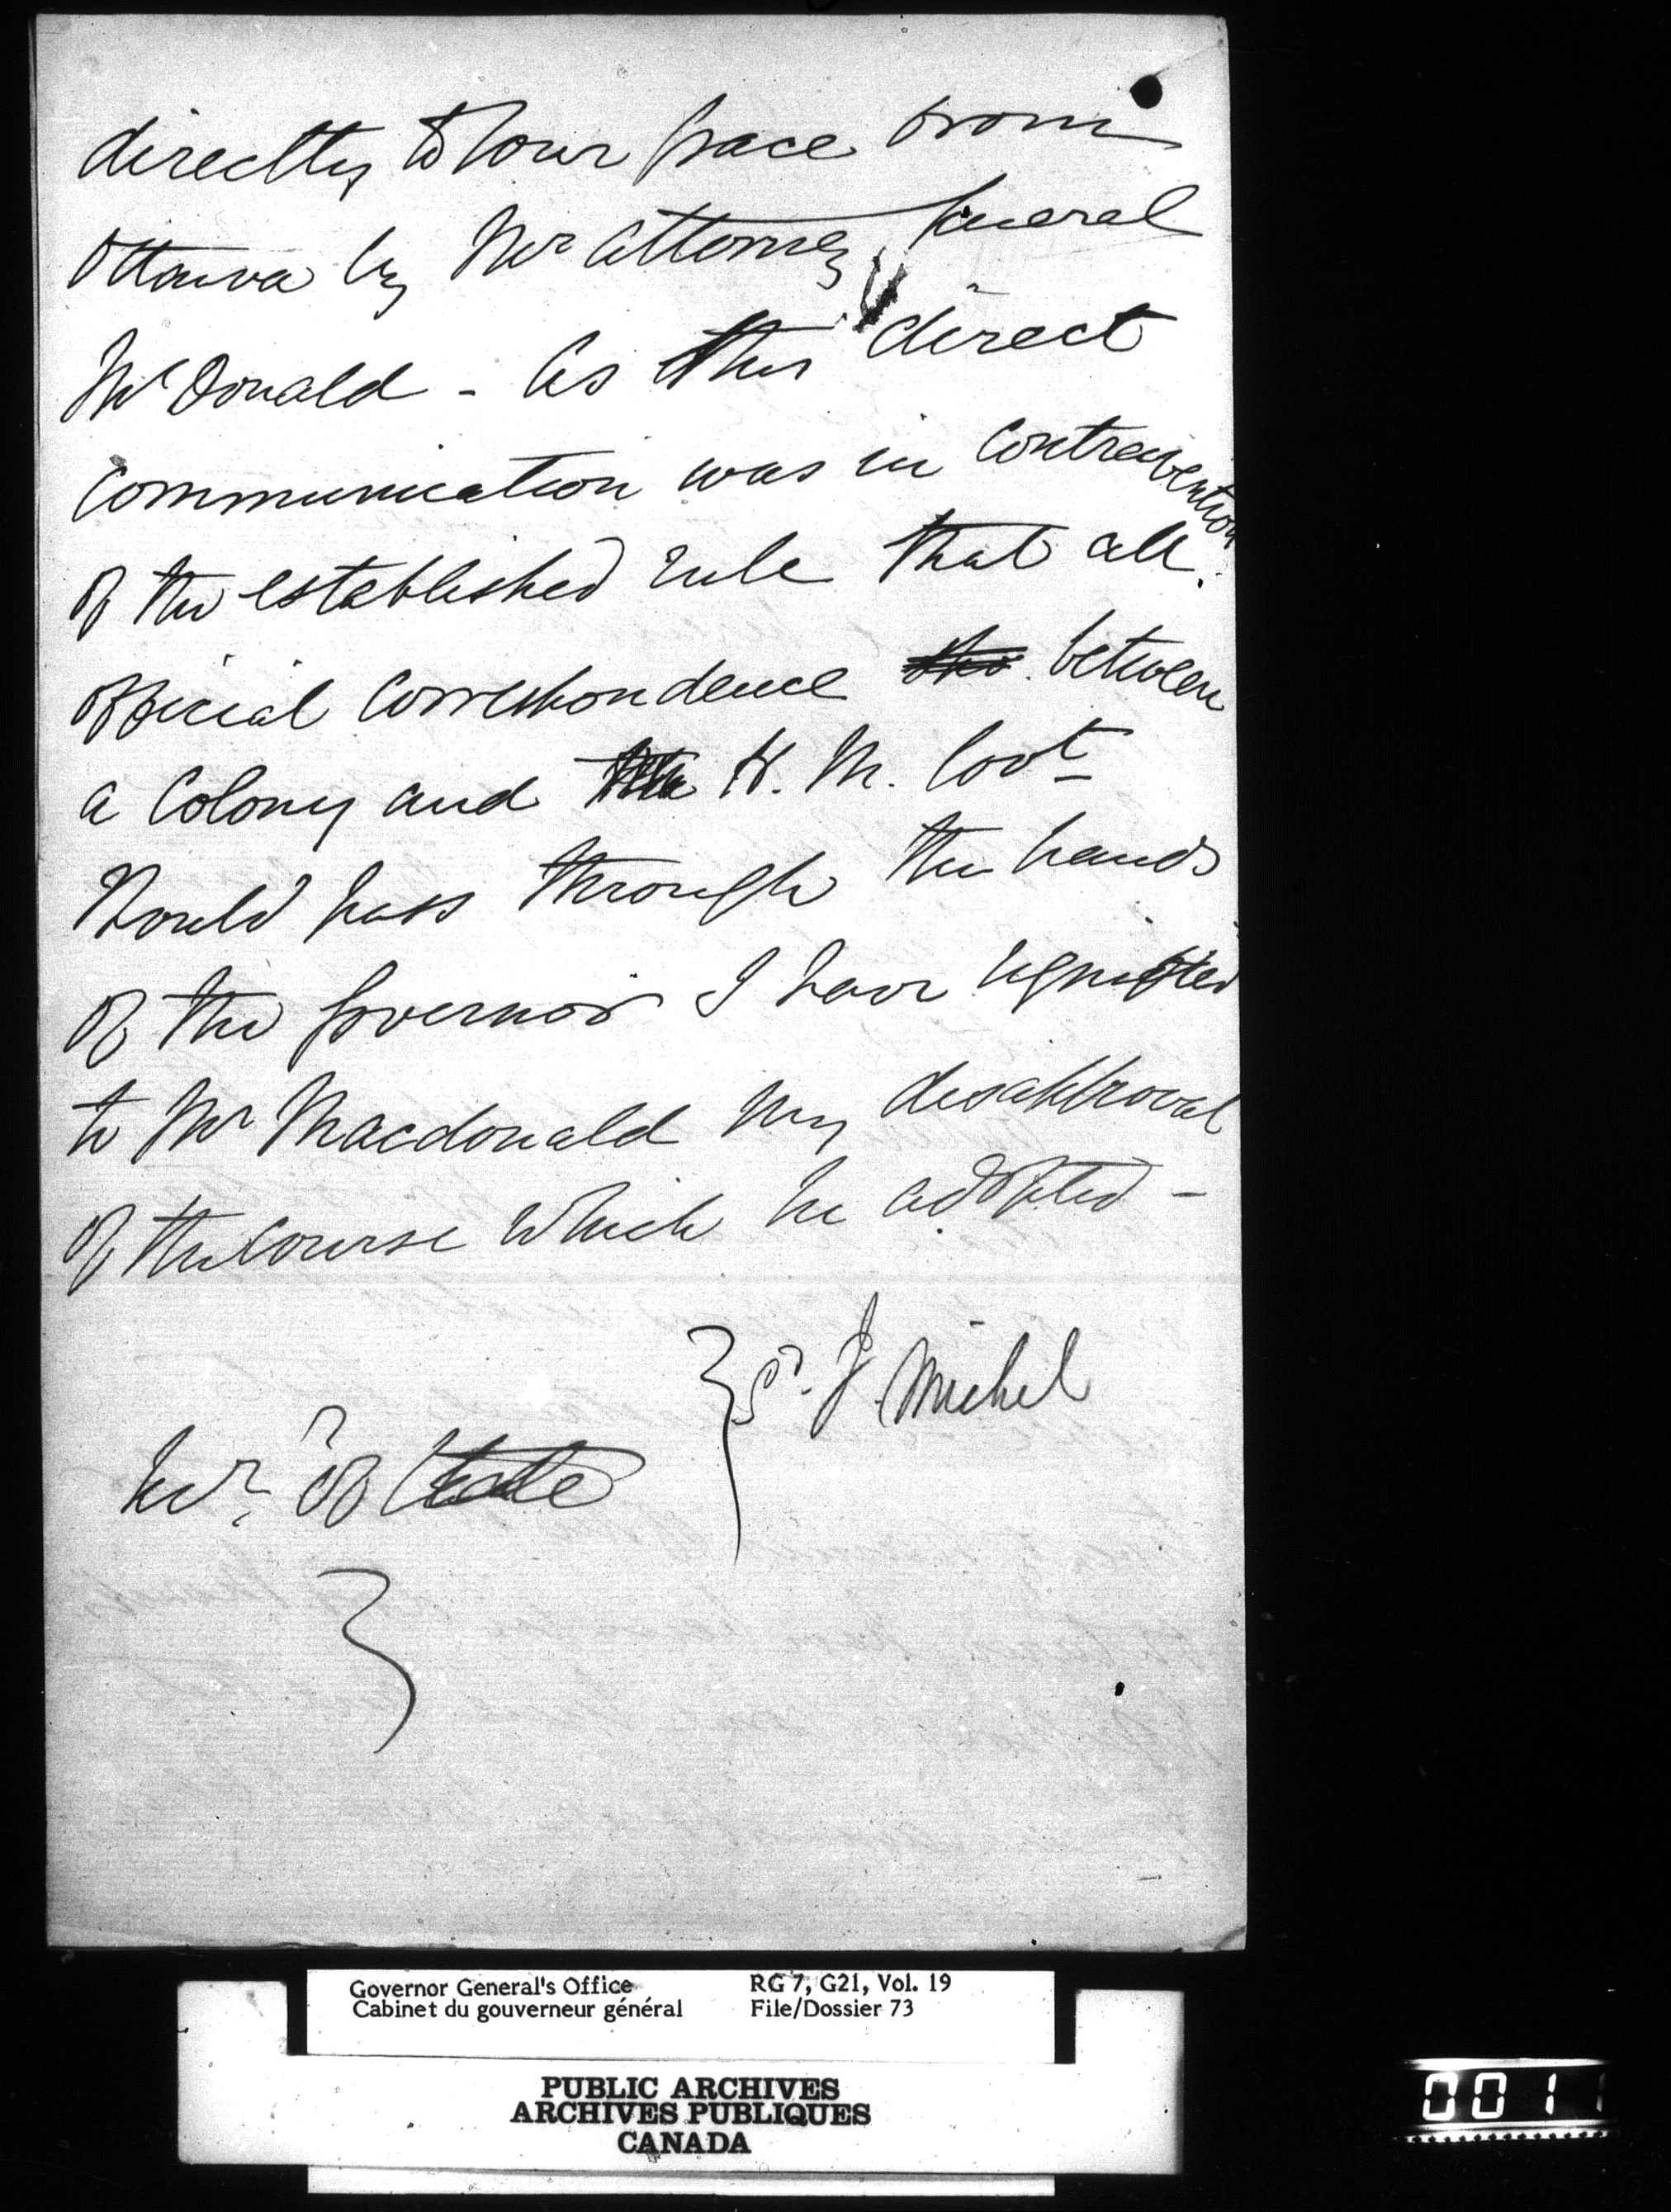 directly to Your Grace from
Ottawa by Mr Attorney General
McDonald - As this direct
communication was in contravention
of the established rule that all
official correspondence the between
a Colony and the H. M. Govt
should pass through the hands
of the Governor I have signified
to Mr Macdonald my disapproval
of the course which he adopted -
Sd. J. Michel
Secr. of State
Governor General's Office RG 7, G21, Vol. 19
Cabinet du gouverneur général File/Dossier 73
PUBLIC ARCHIVES
ARCHIVES PUBLIQUES
CANADA
0011